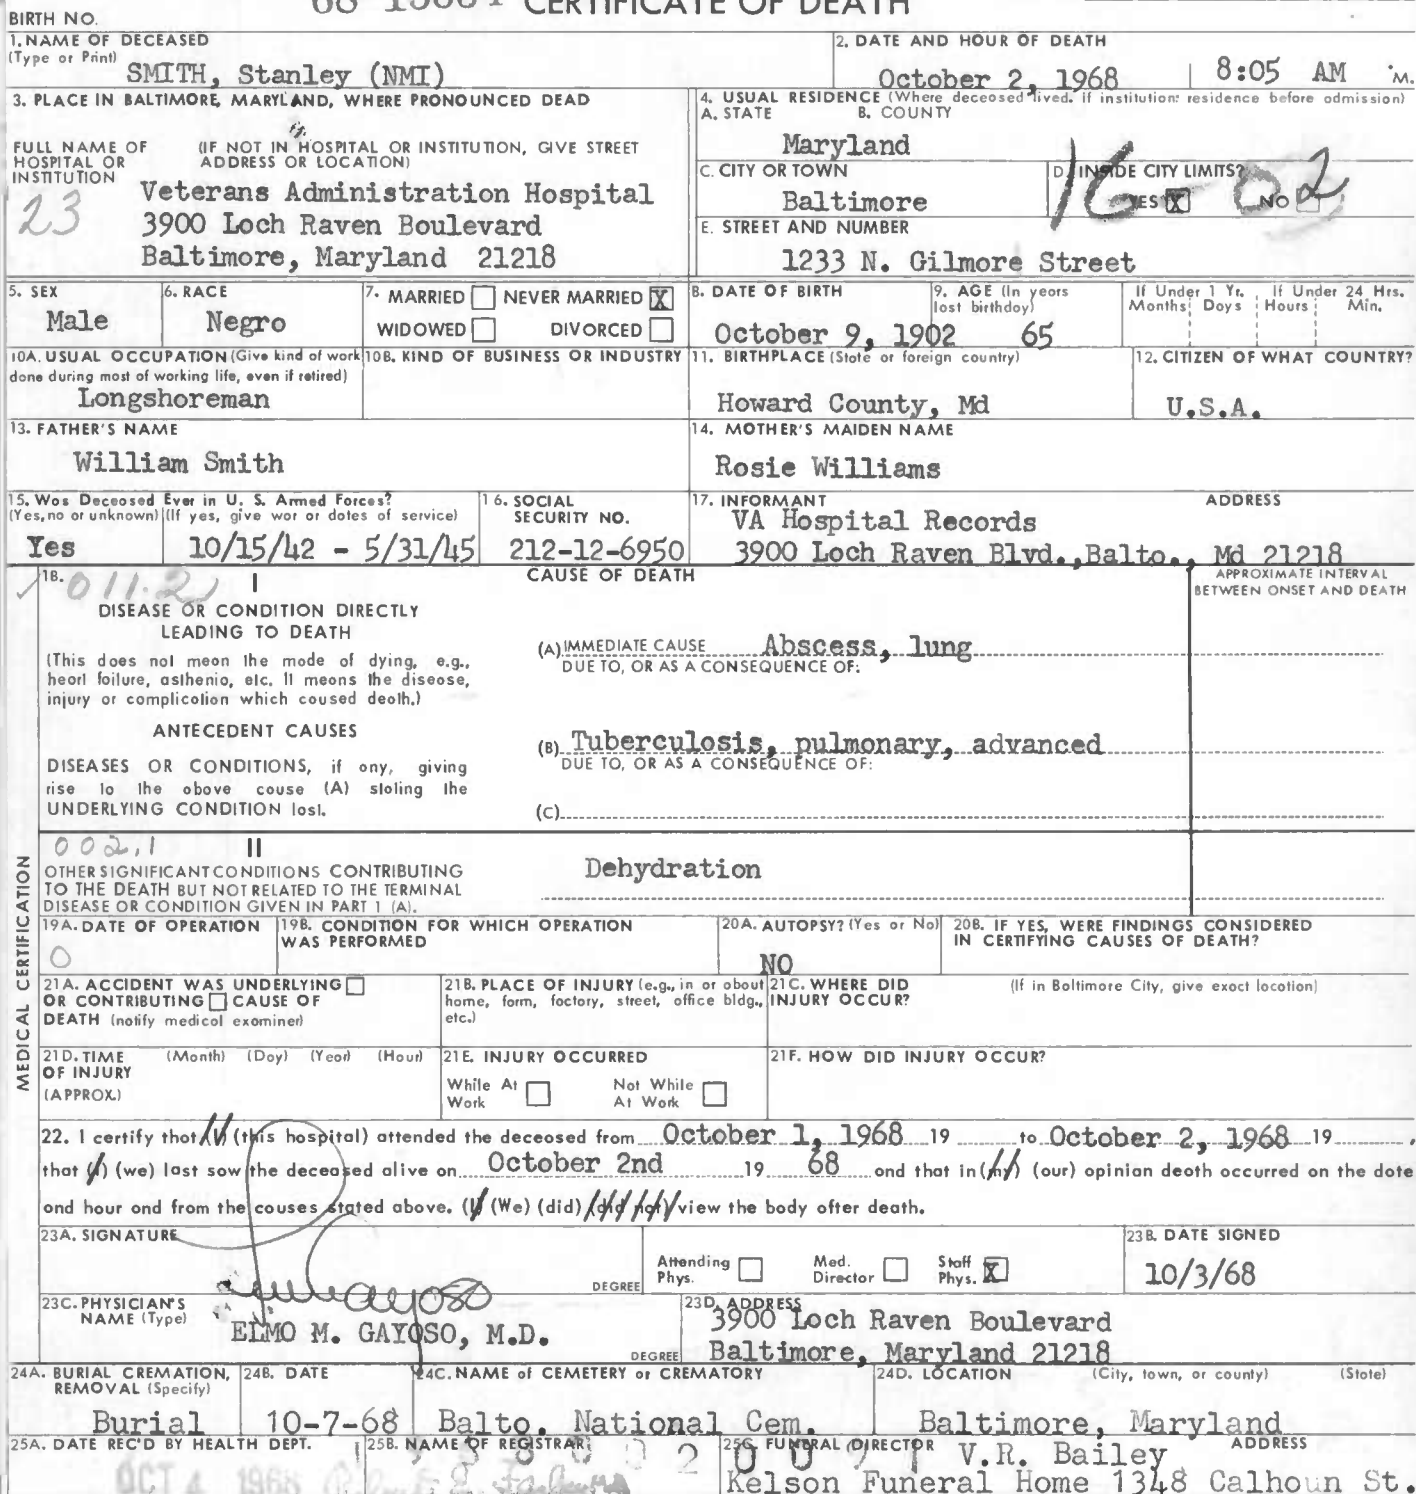 CERTIFICATE OF DEATH
BIRTH NO.
1. NAME OF DECEASED
(Type or Print)
SMITH, Stanley (NMI)
2. DATE AND HOUR OF DEATH
October 2, 1968 8:05 AM M.
3. PLACE IN BALTIMORE, MARYLAND, WHERE PRONOUNCED DEAD
FULL NAME OF HOSPITAL OR INSTITUTION
(IF NOT IN HOSPITAL OR INSTITUTION, GIVE STREET ADDRESS OR LOCATION)
23
Veterans Administration Hospital
3900 Loch Raven Boulevard
Baltimore, Maryland 21218
4. USUAL RESIDENCE (Where deceased lived. If institution: residence before admission)
A. STATE B. COUNTY
Maryland
C. CITY OR TOWN
Baltimore
D. INSIDE CITY LIMITS?
YES X NO
16-02
E. STREET AND NUMBER
1233 N. Gilmore Street
5. SEX
Male
6. RACE
Negro
7. MARRIED NEVER MARRIED X
WIDOWED DIVORCED
8. DATE OF BIRTH
October 9, 1902
9. AGE (In years last birthday)
65
If Under 1 Yr. Months Days
If Under 24 Hrs. Hours Min.
10A. USUAL OCCUPATION (Give kind of work done during most of working life, even if retired)
Longshoreman
10B. KIND OF BUSINESS OR INDUSTRY
11. BIRTHPLACE (State or foreign country)
Howard County, Md
12. CITIZEN OF WHAT COUNTRY?
U.S.A.
13. FATHER'S NAME
William Smith
14. MOTHER'S MAIDEN NAME
Rosie Williams
15. Was Deceased Ever in U. S. Armed Forces?
(Yes, no or unknown) (If yes, give war or dates of service)
Yes 10/15/42 - 5/31/45
16. SOCIAL SECURITY NO.
212-12-6950
17. INFORMANT ADDRESS
VA Hospital Records
3900 Loch Raven Blvd.,Balto., Md 21218
MEDICAL CERTIFICATION
18. 011.2 I
CAUSE OF DEATH
APPROXIMATE INTERVAL BETWEEN ONSET AND DEATH
DISEASE OR CONDITION DIRECTLY
LEADING TO DEATH
(This does not mean the mode of dying, e.g.,
heart failure, asthenia, etc. It means the disease,
injury or complication which caused death.)
(A) IMMEDIATE CAUSE Abscess, lung
DUE TO, OR AS A CONSEQUENCE OF:
ANTECEDENT CAUSES
DISEASES OR CONDITIONS, if any, giving
rise to the above cause (A) stating the
UNDERLYING CONDITION last.
(B) Tuberculosis, pulmonary, advanced
DUE TO, OR AS A CONSEQUENCE OF:
(C)
002.1 II
OTHER SIGNIFICANT CONDITIONS CONTRIBUTING
TO THE DEATH BUT NOT RELATED TO THE TERMINAL
DISEASE OR CONDITION GIVEN IN PART 1 (A).
Dehydration
19A. DATE OF OPERATION
0
19B. CONDITION FOR WHICH OPERATION WAS PERFORMED
20A. AUTOPSY? (Yes or No)
NO
20B. IF YES, WERE FINDINGS CONSIDERED IN CERTIFYING CAUSES OF DEATH?
21A. ACCIDENT WAS UNDERLYING
OR CONTRIBUTING CAUSE OF
DEATH (notify medical examiner)
21B. PLACE OF INJURY (e.g., in or about
home, farm, factory, street, office bldg.,
etc.)
21C. WHERE DID INJURY OCCUR?
(If in Baltimore City, give exact location)
21D. TIME OF INJURY (APPROX.)
(Month) (Day) (Year) (Hour)
21E. INJURY OCCURRED
While At Work Not While At Work
21F. HOW DID INJURY OCCUR?
22. I certify that (I) (this hospital) attended the deceased from October 1, 1968 19 to October 2, 1968 19 ,
that (I) (we) last saw the deceased alive on October 2nd 19 68 and that in (my) (our) opinion death occurred on the date
and hour and from the causes stated above. (I) (We) (did) (did not) view the body after death.
23A. SIGNATURE
DEGREE
Attending Phys. Med. Director Staff Phys. X
23B. DATE SIGNED
10/3/68
23C. PHYSICIAN'S NAME (Type)
ELMO M. GAYOSO, M.D.
DEGREE
23D. ADDRESS
3900 Loch Raven Boulevard
Baltimore, Maryland 21218
24A. BURIAL CREMATION, REMOVAL (Specify)
Burial
24B. DATE
10-7-68
24C. NAME of CEMETERY or CREMATORY
Balto. National Cem.
24D. LOCATION (City, town, or county) (State)
Baltimore, Maryland
25A. DATE REC'D BY HEALTH DEPT.
OCT 4 1968
25B. NAME OF REGISTRAR
25C. FUNERAL DIRECTOR ADDRESS
V.R. Bailey
Kelson Funeral Home 1348 Calhoun St.